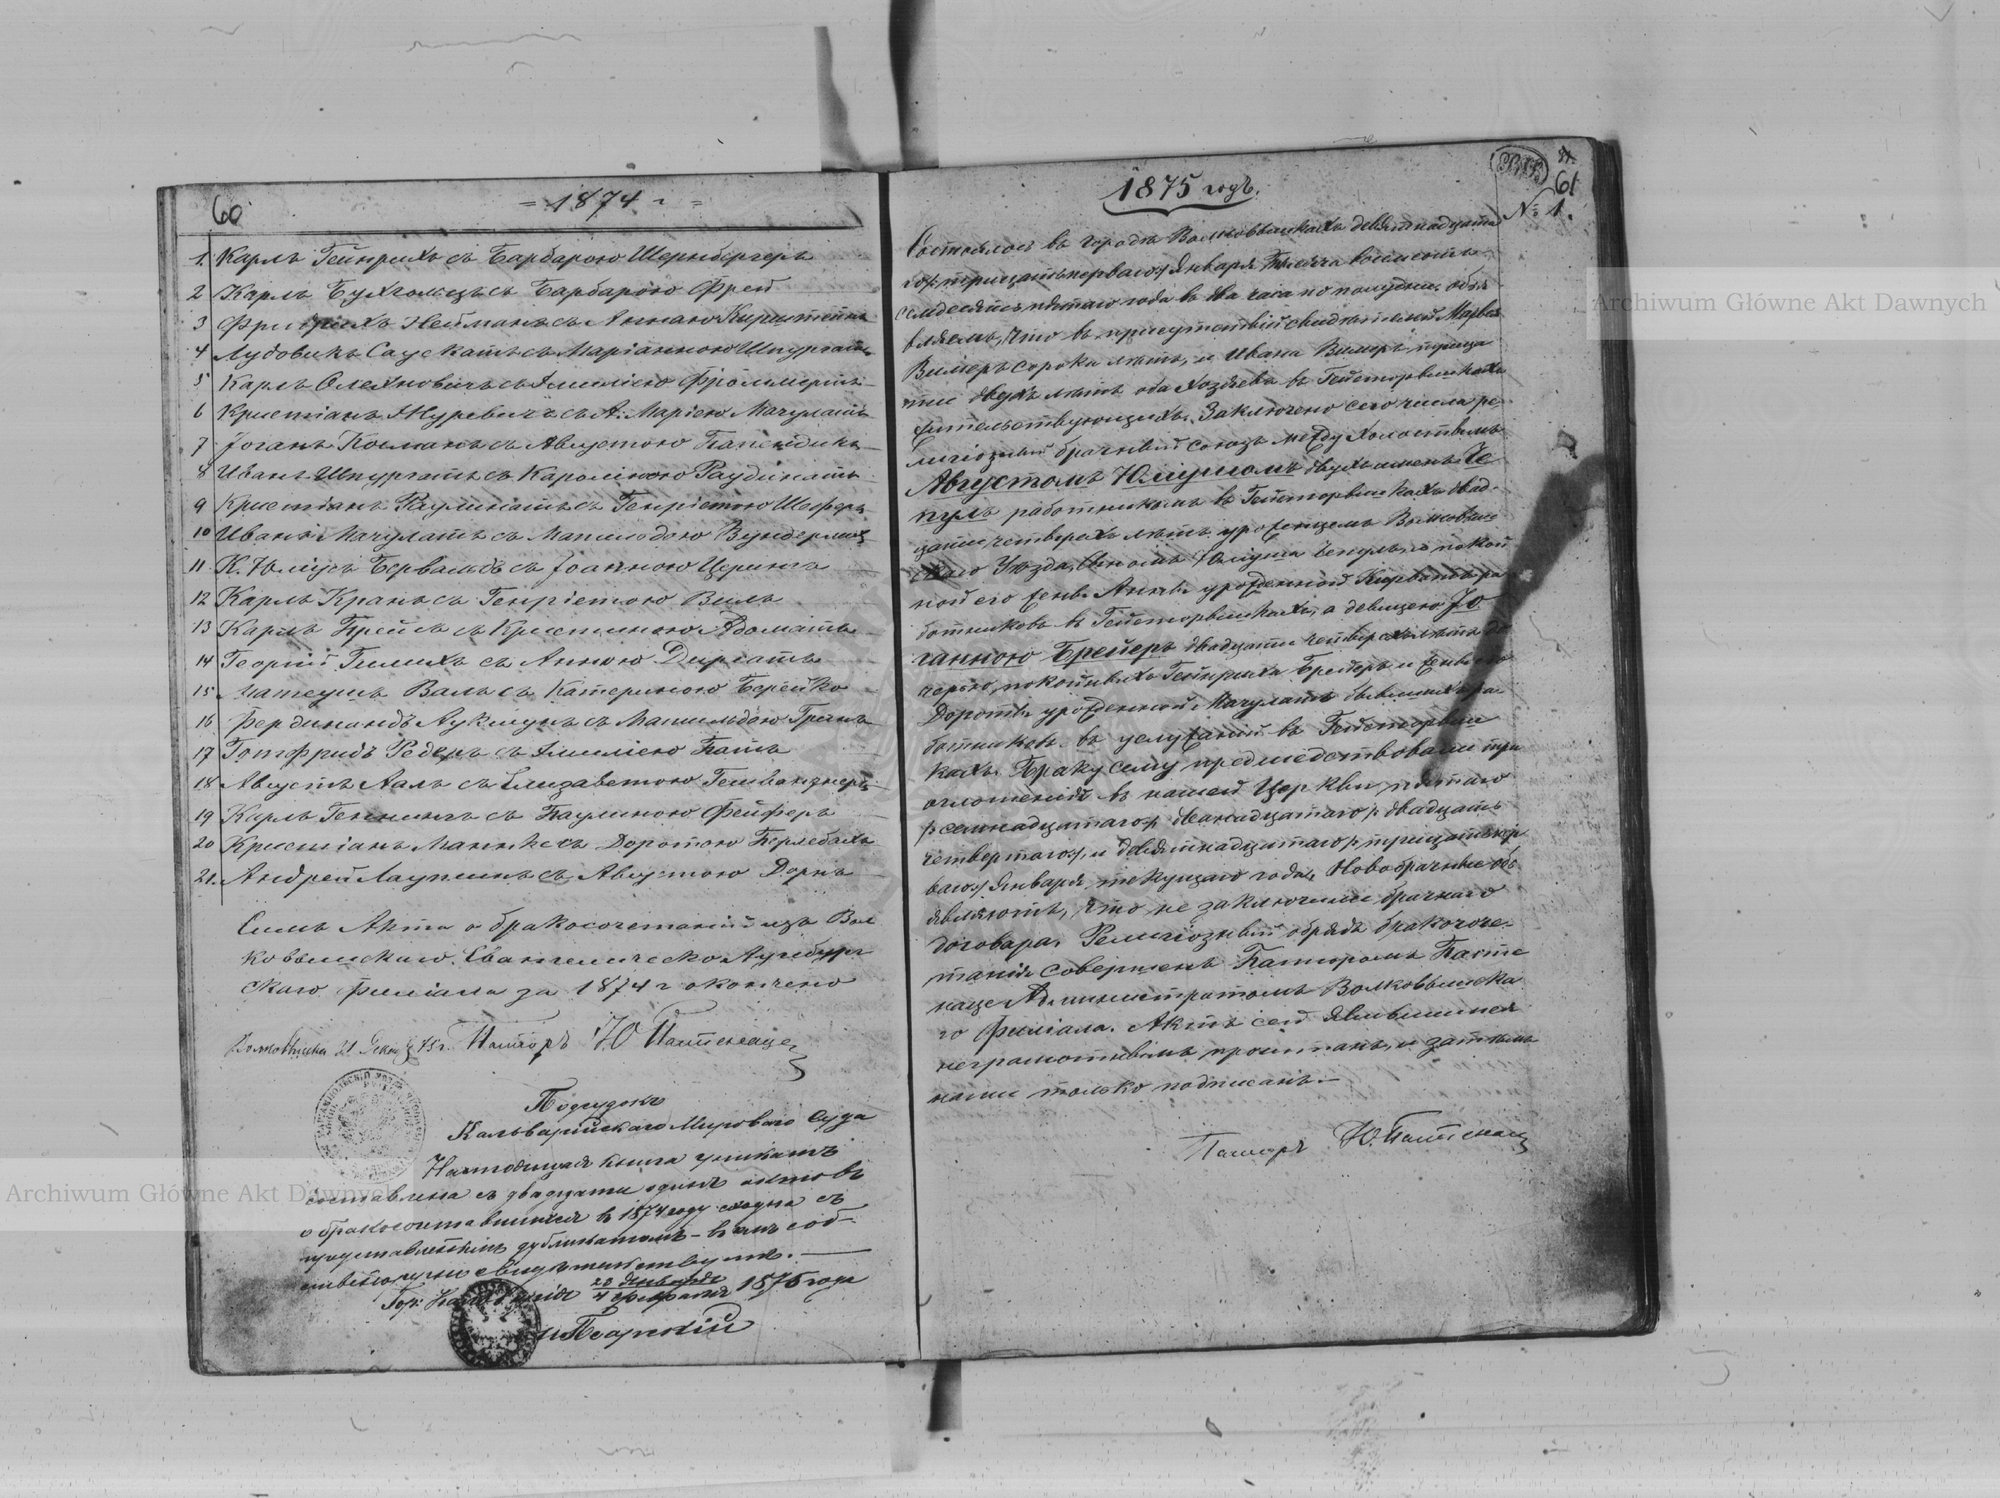 60
= 1874 г =
1. Карлъ Гейнрихъ съ Барбарою Шернбергеръ
2 Карлъ Бухгольцъ съ Барбарою Фрей
3 Фридрихъ Нейманъ съ Анною
4 Лудовикъ Саускатъ съ Маріанною Шпургатъ
5 Карлъ Олехновичъ съ Эмиліею
6 Кристіанъ Журевичъ съ А. Маріею Мачулатъ
7 Іоганъ Косманъ съ Августою
8 Иванъ Шпургатъ съ Каролиною Раудинатъ
9 Кристіанъ Паулинатъ съ Генріетою Шеферъ
10 Иванъ Мачулатъ съ Матильдою Вундерлихъ
11 К. Юліусъ Бервальдъ съ Іоанною Церингъ
12 Карлъ Кранъ съ Генріетою Виль
13 Карлъ Прейсъ съ Кристиною Адоматъ
14 Георгій Гилихъ съ Анною Диргатъ
15 Матеушъ Валь съ Катериною Берейко
16 Фердинандъ съ Матильдою Гринъ
17 Готфридъ Редеръ съ Эмиліею Патъ
18 АвгустъАаль съ Елизаветою
19 Карлъ Геннингъ съ Паулиною Фейферъ
20 Кристіанъ Манке съ Доротою Перлебахъ
21. Андрей Лаупшнъ съ Августою Дорнъ
Симъ Акта о бракосочетаній изъ Вол
ковышскаго Евангелическо Аугсбург
скаго филіала за 1874 г окончено
Волковышки 21 75 г. Пасторъ Ю Пастенаци
Подсудокъ
Кальварійскаго Мироваго Суда
Настоящая книга уникатъ
составлена съ двадцати одинъ актовъ
о бракосочетавшихся въ 1874 году сходна съ
представленнымъ дубликатомъ – въ чемъ соб-
ственноручно свидѣтельствуетъ. —
Гор: Кальварія 23 Января
4 Февраля 1875 года
1875 годъ.
61
№ 1.
Состоялось въ городѣ Волковышкахъ девятнадцата
го /тридцатьперваго/ Января Тысяча восемьсотъ
семдесятъ пятаго года въ два часа по полудни. объя
вляемъ, что въ присутствіи свидѣтелей
Вимеръ сорока лѣтъ, и Ивана Вимеръ, трица
ти двухъ лѣтъ оба хозяева въ Гейсторвишкахъ
жительствующихъ. Заключено сего числа ре
лигіозный брачный союзъ между холостымъ
Августомъ Юліушомъ двухъ именъ Че
пулъ работникомъ въ Гейсторвишкахъ двад
цати четверехъ лѣтъ. уроженцемъ Волковыш
скаго Уѣзда, Сыномъ Юліуша Чепулъ и покой
ной его жены Анны урожденной ра
ботниковъ въ Гейсторвишкахъ, а девицею Іо
ганною Брейеръ двадцати четверехъ лѣтъ до
черью, покойныхъ Гейнриха Брейеръ и жены его
Дороты урожденной Мачулатъ бывшихъ ра
ботниковъ въ услуженій въ Гейсторвиш
кахъ. Браку сему предшедствовали три
оглошенія въ нашей Церкви, пятаго
/семнадцатаго/, двенадцатаго /двадцать
четвертаго/, и девятнадцатаго /тридцатьпер
ваго/ Января, текущаго года. Новобрачные объ
являютъ, что не заключили брачнаго
договора. Религіозный обрядъ бракосоче
танія совершенъ Пасторомъ Пасте
наци Администратомъ Волковышска
го Филіала. Актъ сей Явившимся
неграмотнымъ прочитанъ, и затѣмъ
нами только подписанъ. —
Пасторъ Ю. Пастенаци
Archiwum Główne Akt Dawnych
Archiwum Główne Akt Dawnych